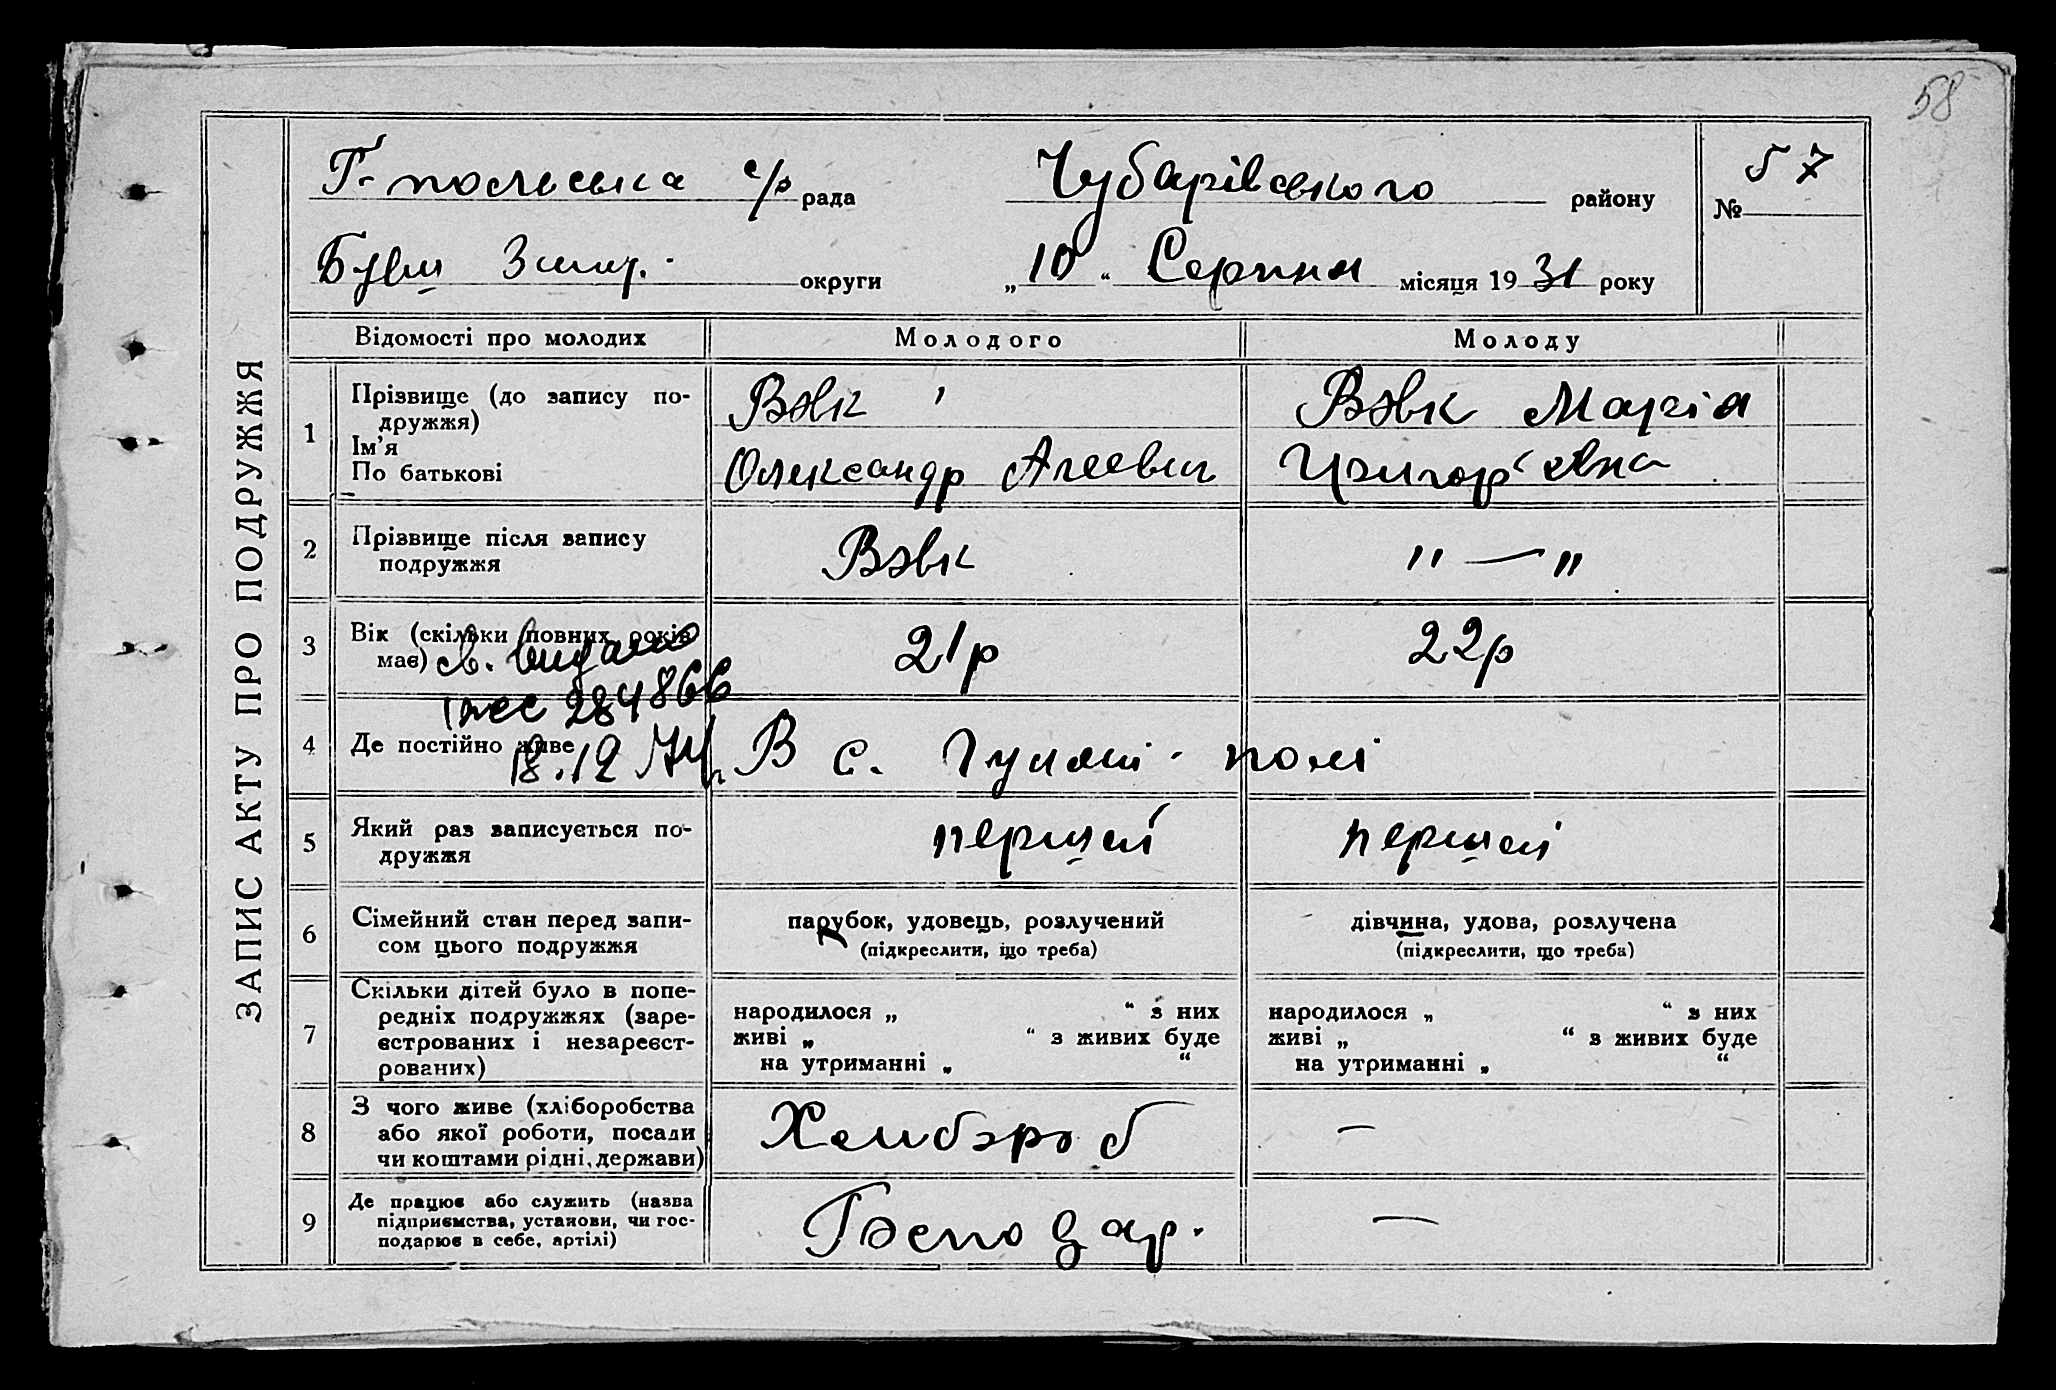 58
ЗАПИС АКТУ ПРО ПОДРУЖЖЯ
Г-польська с/р рада Чубарівського району № 57
Бувш Запор. округи „10“ Серпня місяця 1931 року
Відомості про молодих Молодого Молоду
1 Прізвище (до запису по-
дружжя)
Ім’я
По батькові
Вовк
Олександр Агеевич
Вовк Марія
Григор’євна
2 Прізвище після запису
подружжя
Вовк
"—"
3 Вік (скільки повних років
має)
21р
22р
св. видано
284866
18.12
4 Де постійно живе
В с. Гуляй-полі
5 Який раз записується по-
дружжя
перший
перший
6 Сімейний стан перед запи-
сом цього подружжя
парубок, удовець, розлучений
(підкреслити, що треба)
дівчина, удова, розлучена
(підкреслити, що треба)
7 Скільки дітей було в попе-
редніх подружжях (заре-
єстрованих і незареєст-
рованих)
народилося „ “ з них
живі „ “ з живих буде
на утриманні „ “
народилося „ “ з них
живі „ “ з живих буде
на утриманні „ “
8 З чого живе (хліборобства
або якої роботи, посади
чи коштами рідні, держави)
Хлибороб
—
9 Де працює або служить (назва
підприємства, установи, чи гос-
подарює в себе, артілі)
Господар.
—